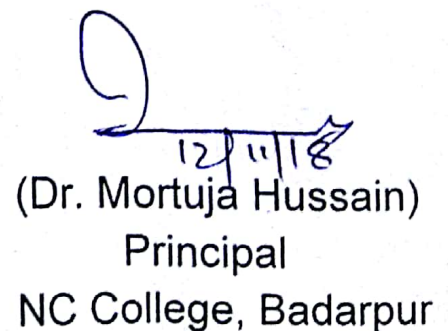 12/11/18
(Dr. Mortuja Hussain)
Principal
NC College, Badarpur